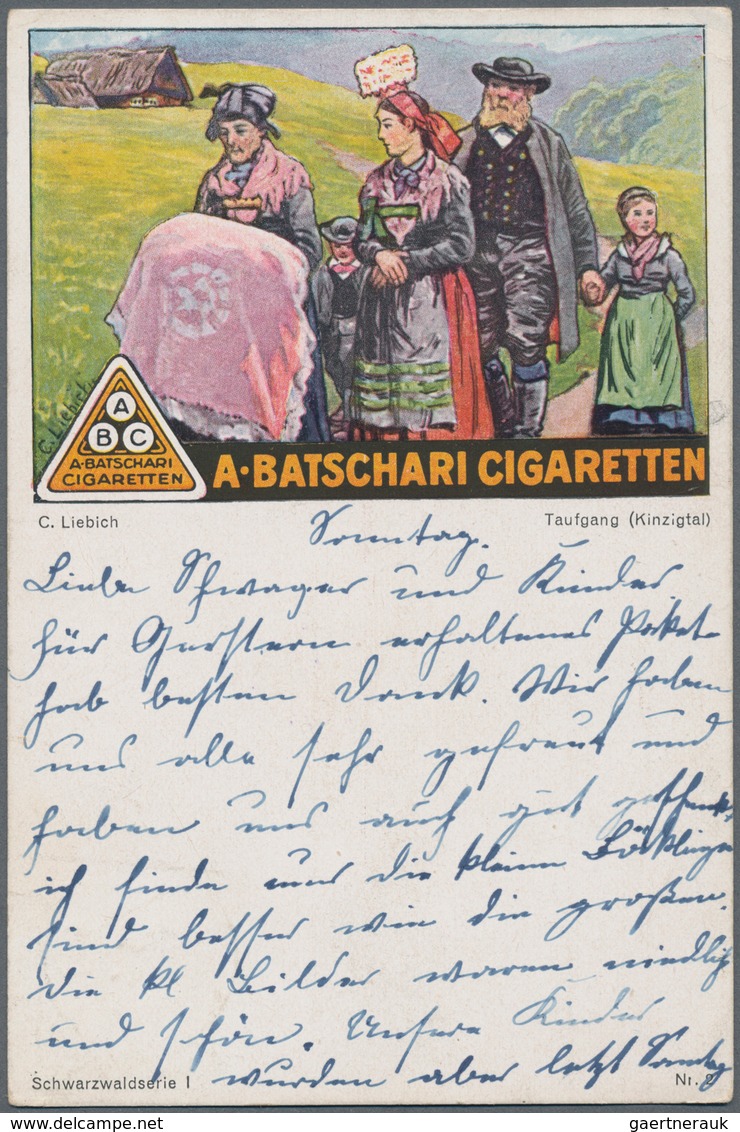 C. Liebich
A
B C
A·BATSCHARI
CIGARETTEN
A·BATSCHARI CIGARETTEN
C. Liebich
Taufgang (Kinzigtal)
Sonntag.
Liebe Schwager und Kinder
für Gestern erhaltenes Paket
hab besten Dank. Wir haben
uns alle sehr gefreut und
haben uns auch gut
ich finde die kleinen Bücklinge
sind besser wie die großen.
die kl Bilder waren niedlich
und schön. Unsere Kinder
wurden aber letzt Sonntag
Schwarzwaldserie I
Nr. 2
gaertnerauk
© www.delcampe.net